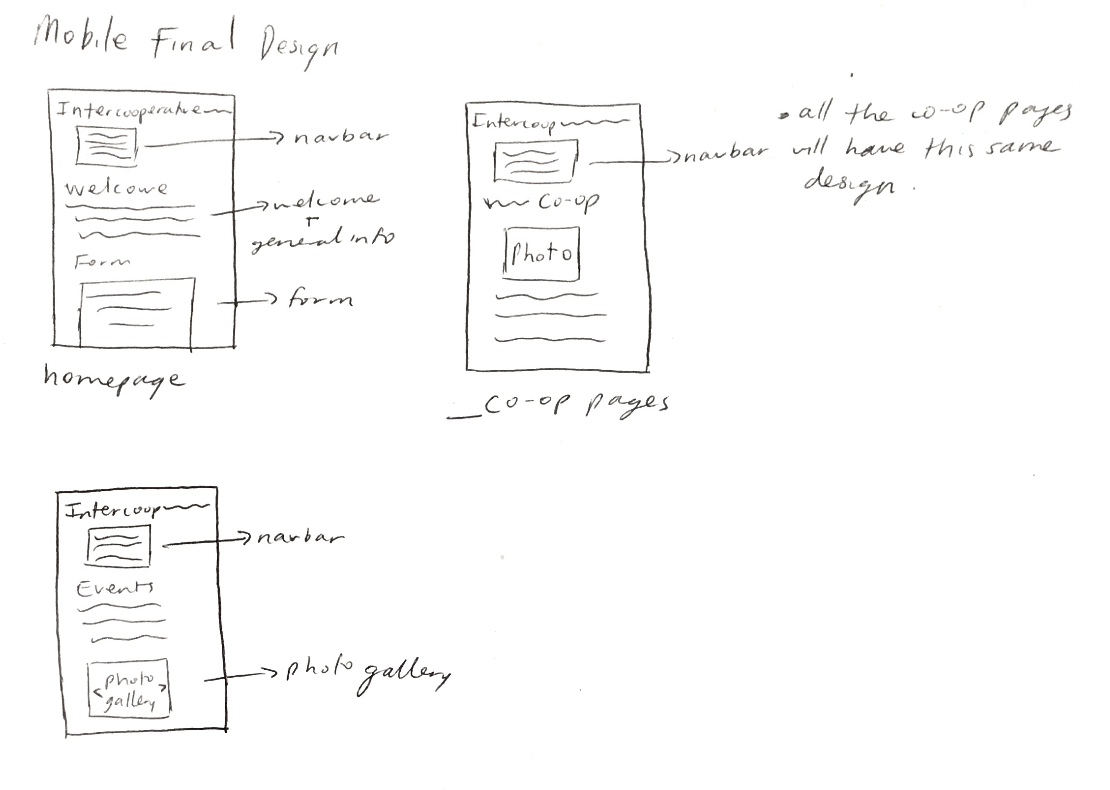 Mobile Final Design
Intercooperative
navbar
Welcome
welcome
+
general info
Form
form
homepage
Intercoop
navbar
Co-op
Photo
__Co-op pages
• all the co-op pages
will have this same
design.
Intercoop
navbar
Events
< photo >
gallery
photo gallery